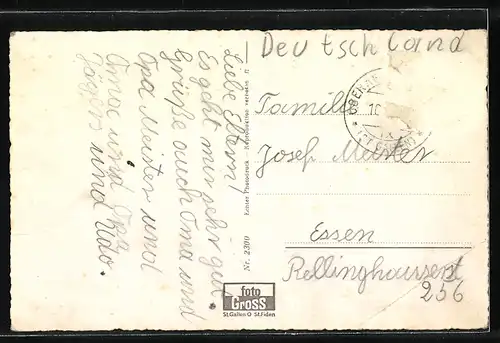 Liebe Eltern!
Es geht mir sehr gut.
Grüße auch Oma und
Opa Meister und
Oma und Opa
Jäger und Udo.
Nr. 2300
Echter Photodruck Reproduktion verboten
foto
GROSS
St.Gallen O St.Fiden
Deutschland
Familie
Josef Meister
Essen
Rellinghauserst
256